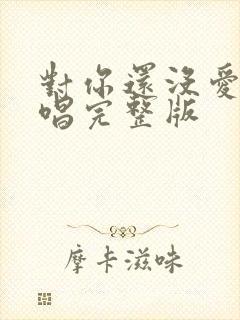 對你還沒愛
唱完整版
摩卡滋味